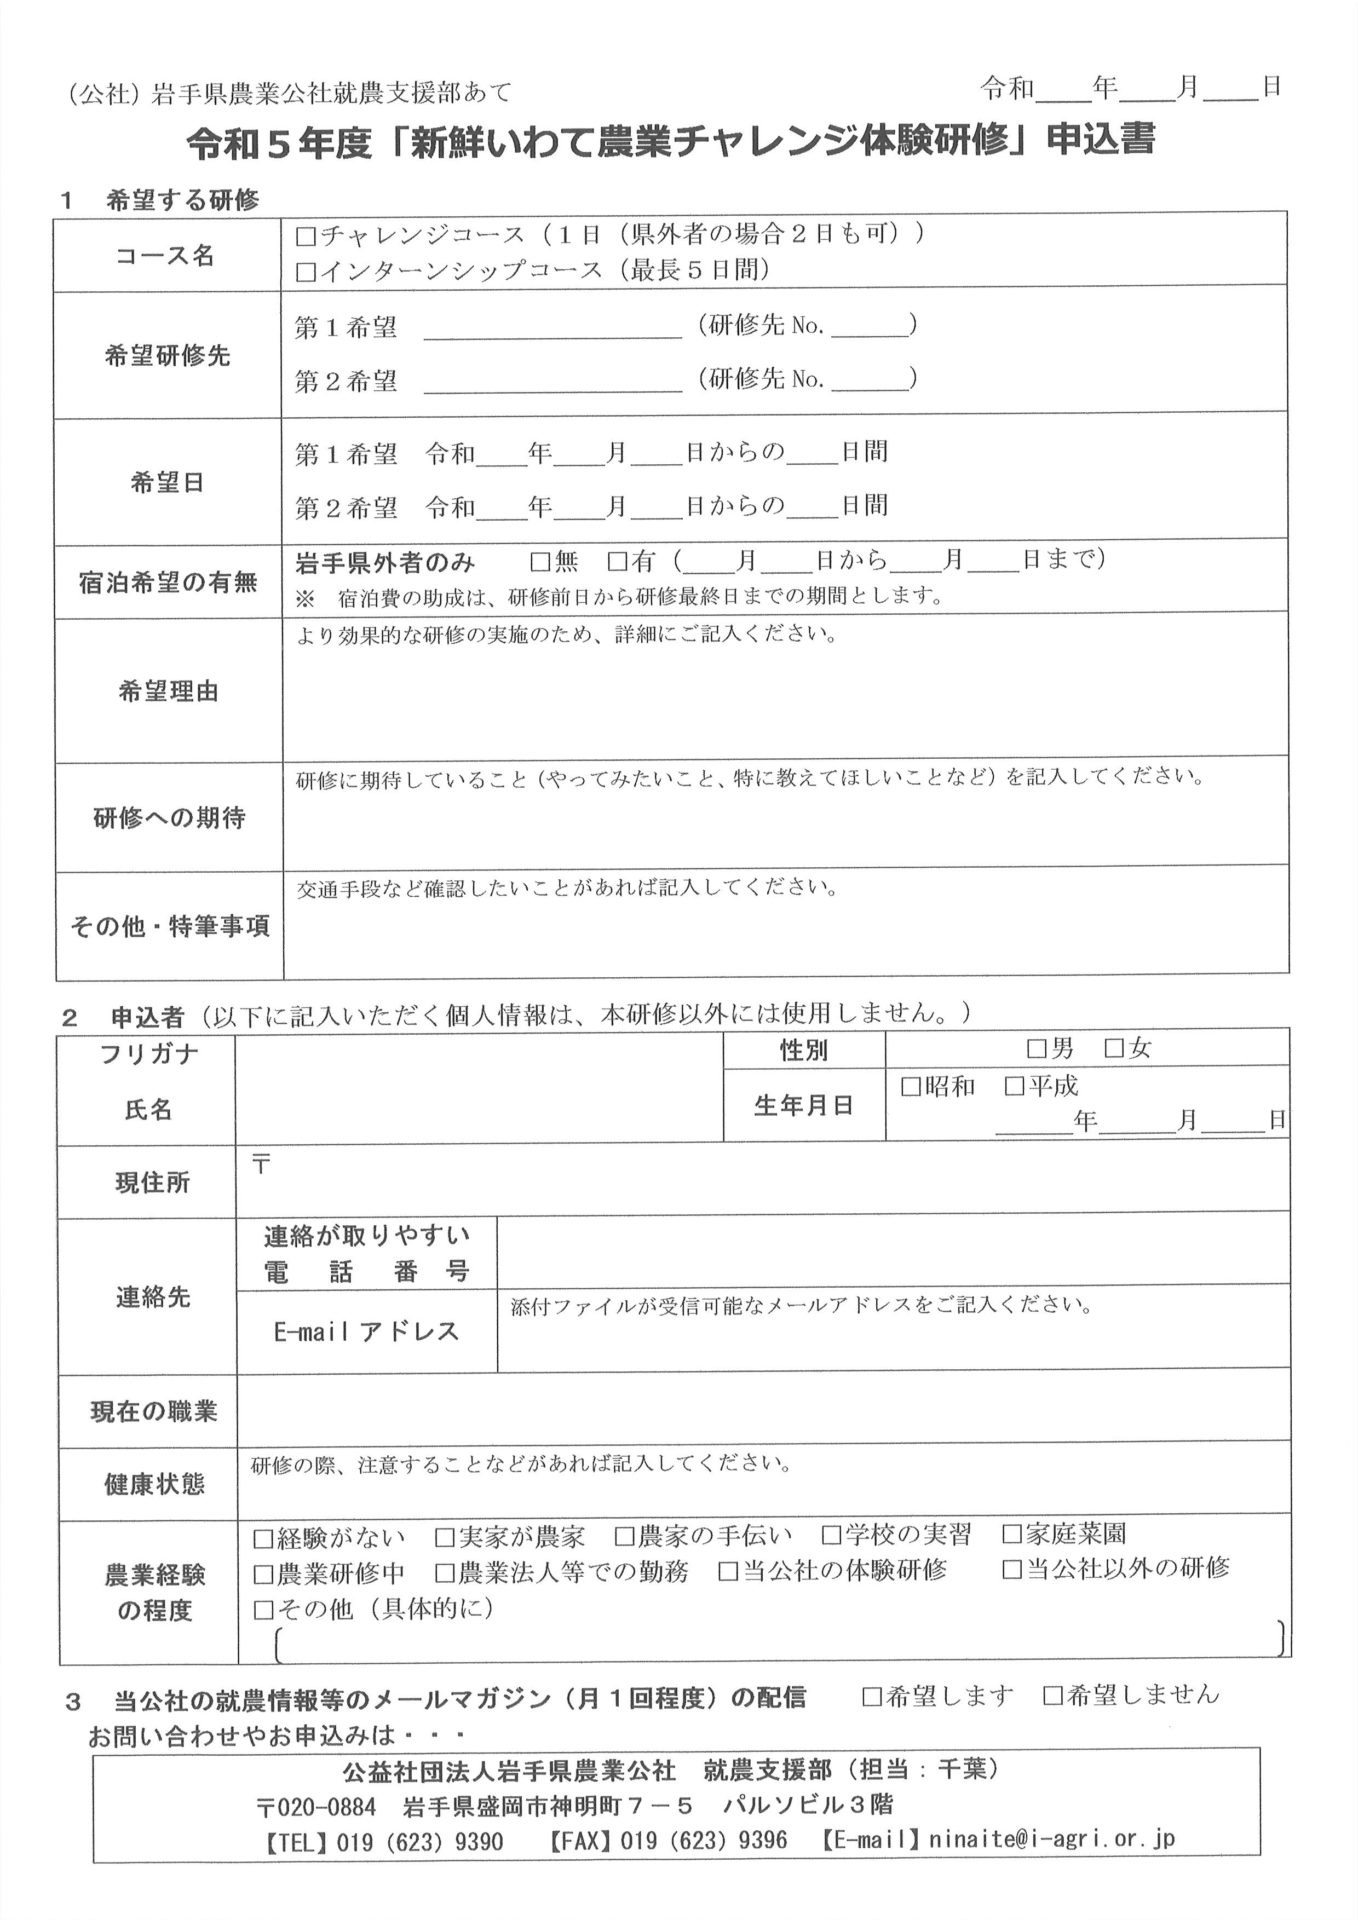 （公社）岩手県農業公社就農支援部あて　令和____年____月____日
令和５年度「新鮮いわて農業チャレンジ体験研修」申込書
１　希望する研修
コース名
□チャレンジコース（１日（県外者の場合２日も可））
□インターンシップコース（最長５日間）
希望研修先
第１希望　____________________（研修先 No.______）
第２希望　____________________（研修先 No.______）
希望日
第１希望　令和____年____月____日からの____日間
第２希望　令和____年____月____日からの____日間
宿泊希望の有無
岩手県外者のみ　□無　□有（____月____日から____月____日まで）
※　宿泊費の助成は、研修前日から研修最終日までの期間とします。
希望理由
より効果的な研修の実施のため、詳細にご記入ください。
研修への期待
研修に期待していること（やってみたいこと、特に教えてほしいことなど）を記入してください。
その他・特筆事項
交通手段など確認したいことがあれば記入してください。
２　申込者（以下に記入いただく個人情報は、本研修以外には使用しません。）
フリガナ
氏名
性別
□男　□女
生年月日
□昭和　□平成
______年______月_____日
現住所
〒
連絡先
連絡が取りやすい
電話番号
E-mail アドレス
添付ファイルが受信可能なメールアドレスをご記入ください。
現在の職業
健康状態
研修の際、注意することなどがあれば記入してください。
農業経験
の程度
□経験がない　□実家が農家　□農家の手伝い　□学校の実習　□家庭菜園
□農業研修中　□農業法人等での勤務　□当公社の体験研修　□当公社以外の研修
□その他（具体的に）
３　当公社の就農情報等のメールマガジン（月１回程度）の配信　□希望します　□希望しません
お問い合わせやお申込みは・・・
公益社団法人岩手県農業公社　就農支援部（担当：千葉）
〒020-0884　岩手県盛岡市神明町７－５　パルソビル３階
【TEL】019（623）9390　【FAX】019（623）9396　【E-mail】ninaite@i-agri.or.jp